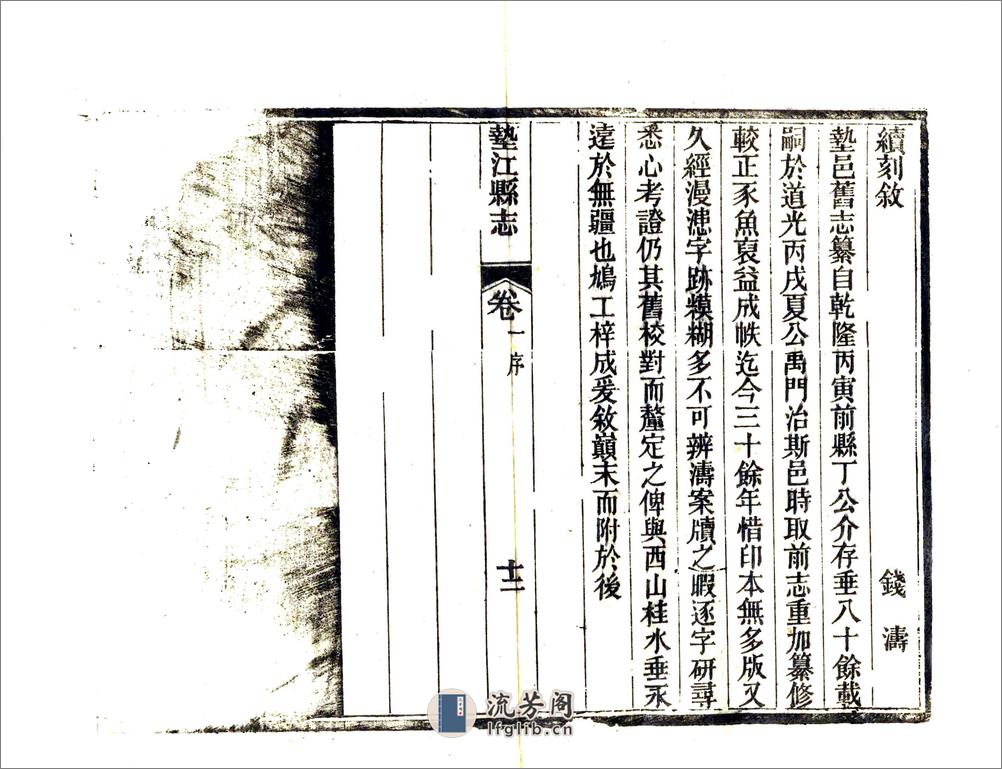 續刻敘
錢濤
墊邑舊志纂自乾隆丙寅前縣丁公介存垂八十餘載
嗣於道光丙戌夏公禹門治斯邑時取前志重加纂修
較正豕魚裒益成帙迄今三十餘年惜印本無多版又
久經漫漶字跡糢糊多不可辨濤案牘之暇逐字研尋
悉心考證仍其舊校對而釐定之俾與西山桂水垂永
遠於無疆也鳩工梓成爰敘巔末而附於後
墊江縣志
卷一
序
十二
流芳阁
lfglib.cn